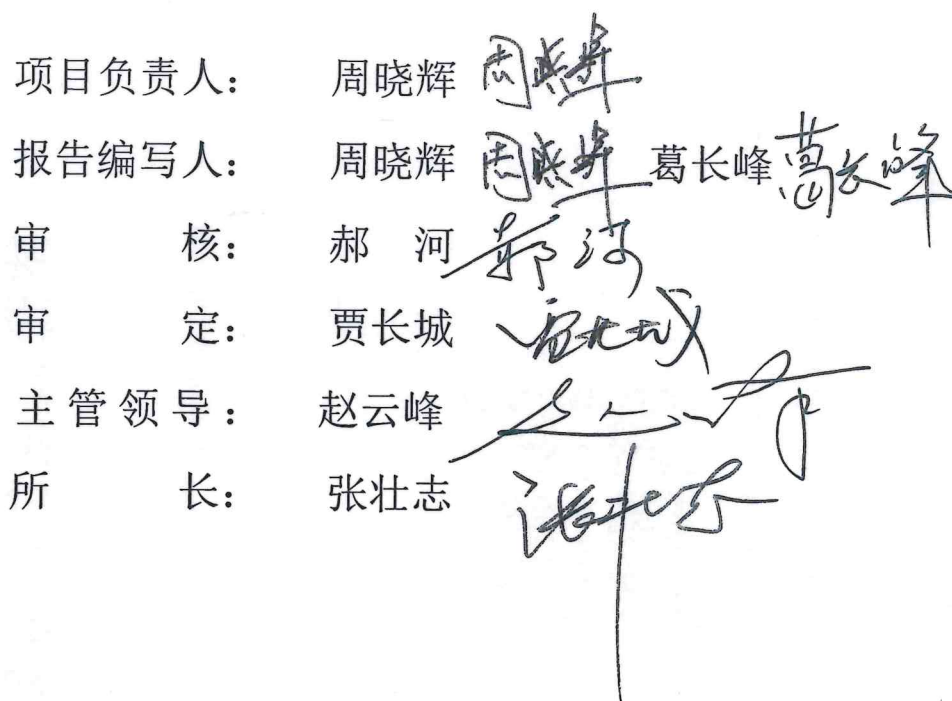 项目负责人： 周晓辉 周晓辉
报告编写人： 周晓辉 周晓辉 葛长峰 葛长峰
审 核： 郝 河 郝河
审 定： 贾长城 贾长城
主管领导： 赵云峰
所 长： 张壮志 张壮志